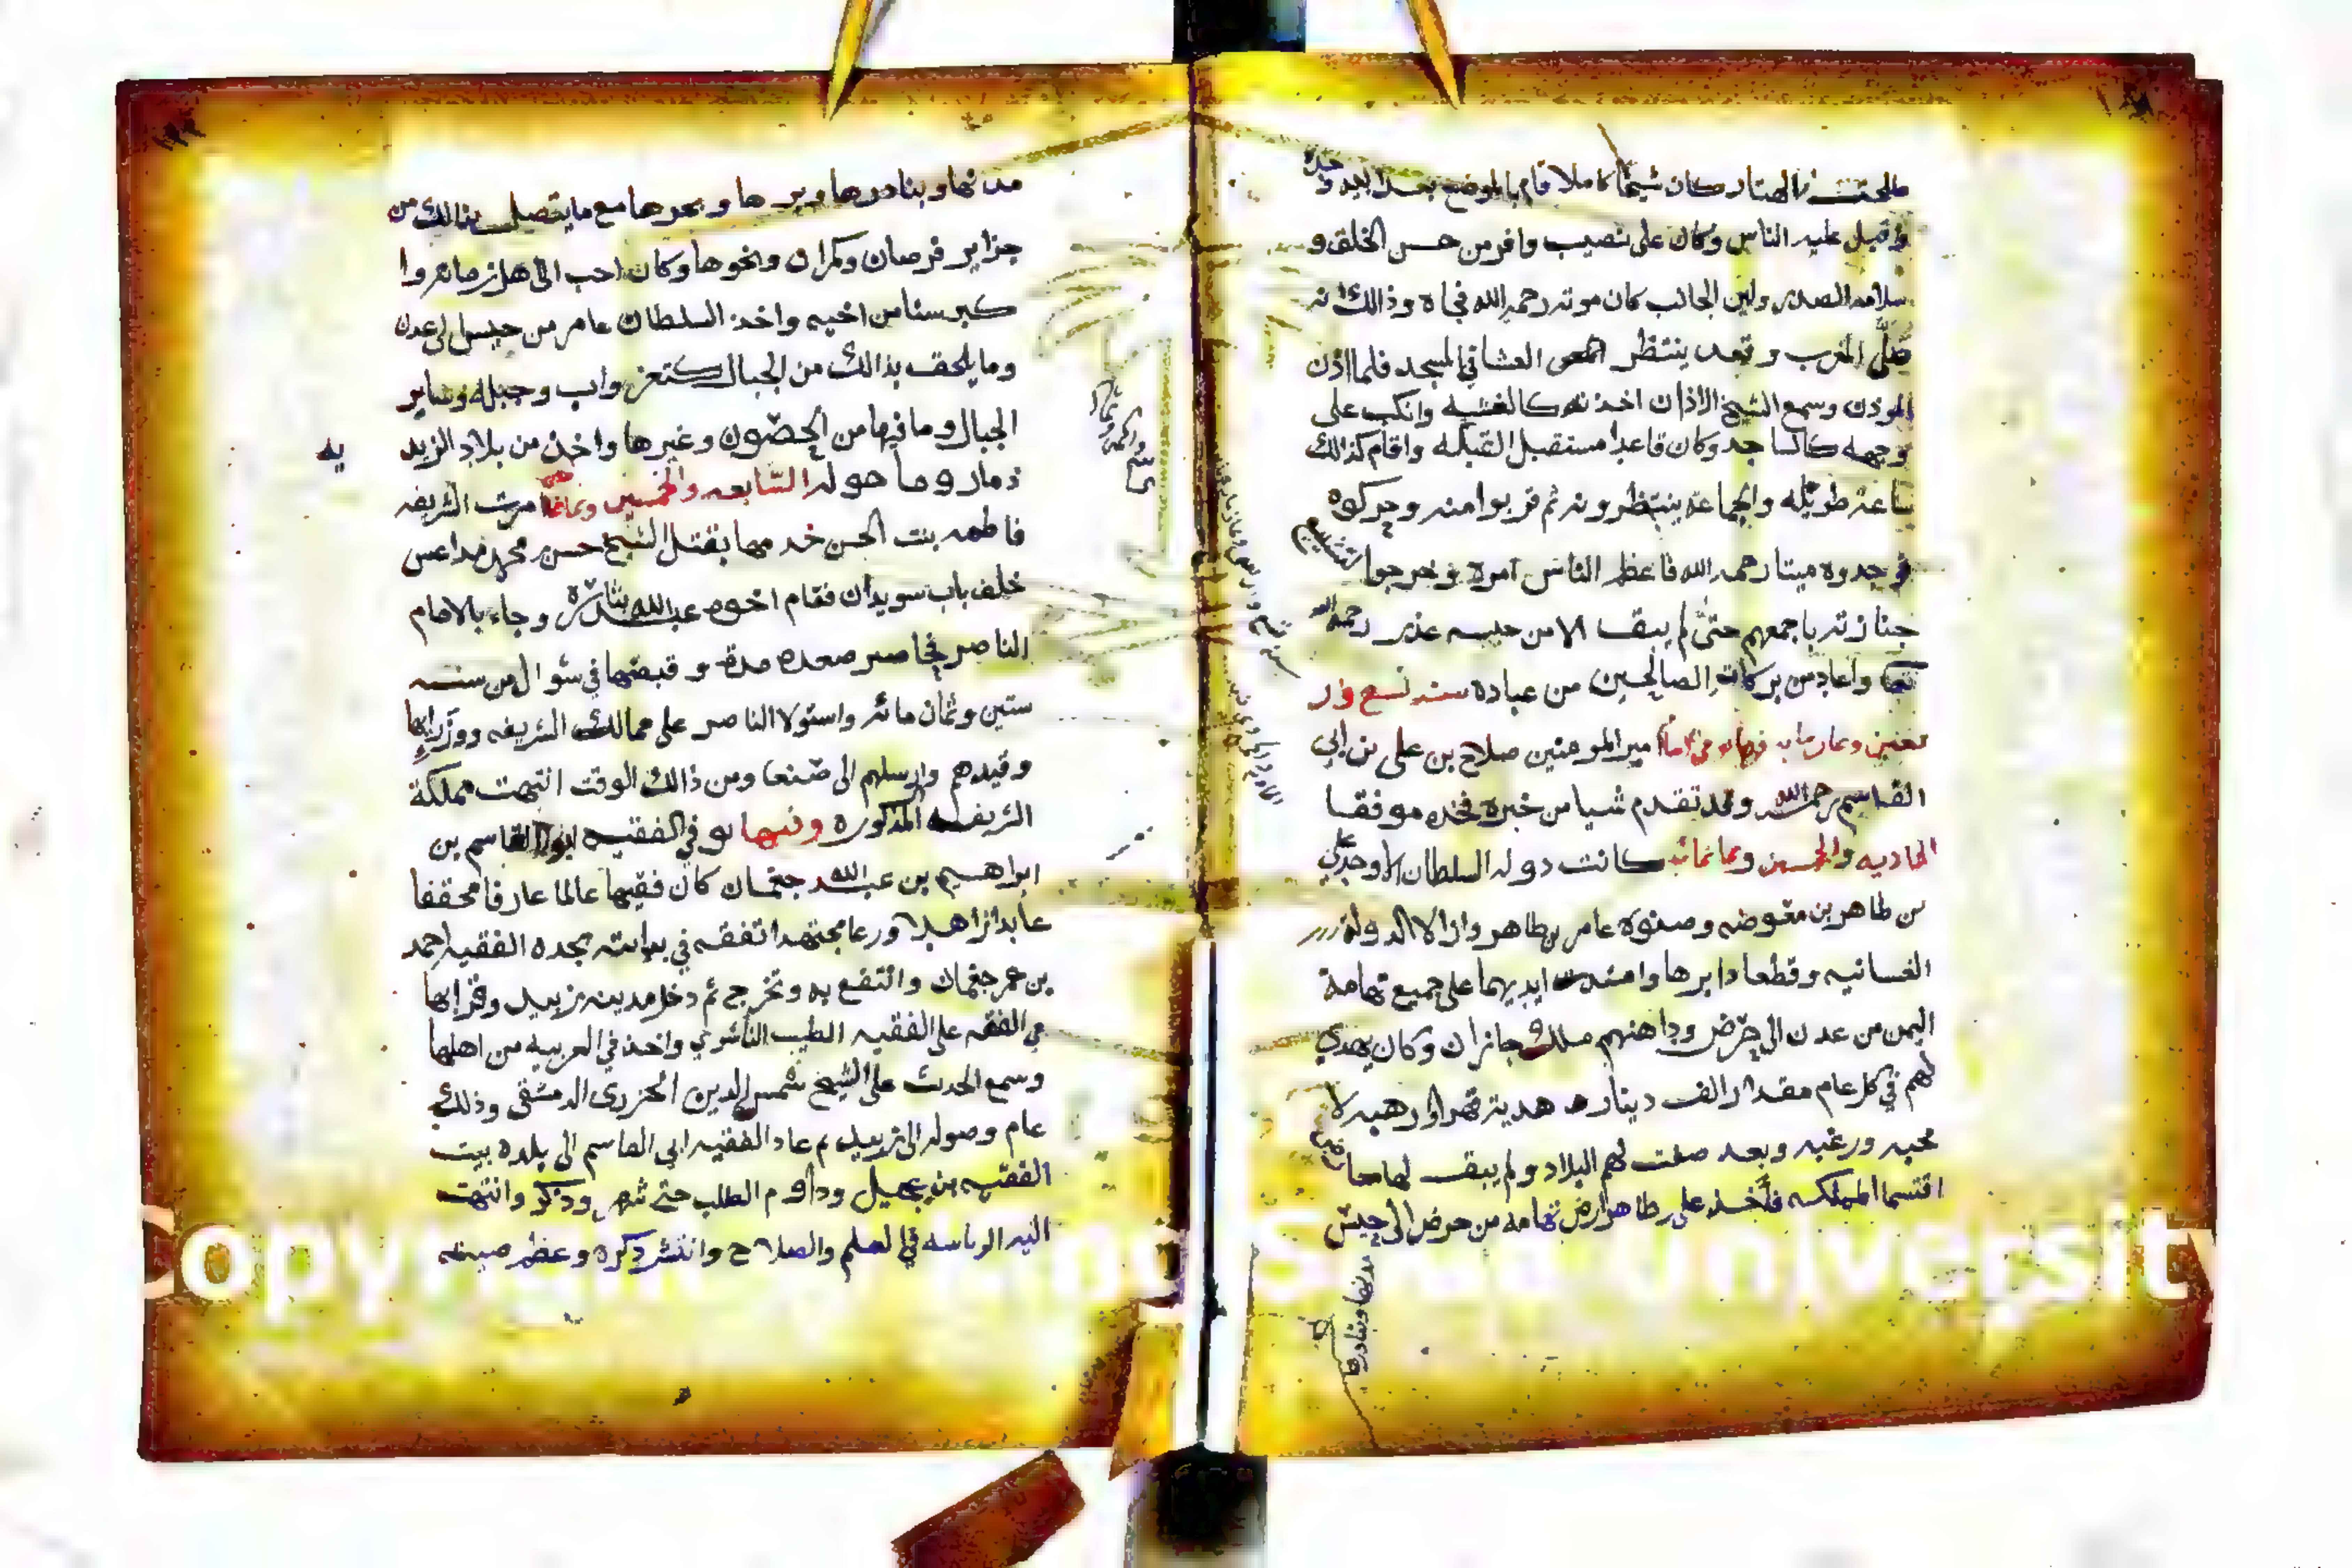 طلحة الهتار كان شيخا كاملا قام بالموضع بعد ابيه وجده
واقبل عليه الناس وكان على نصيب وافر من حسن الخلق و
سلامه الصدر ولين الجانب كان موته رحمه الله فجاه وذالك انه
صلى المغرب وقعد ينتظر العشا في المسجد فلما اذن
الموذن وسمع الشيخ الاذان اخذته كالغشيه وانكب على
وجهه كالساجد وكان قاعدا مستقبل القبله واقام كذالك
ساعة طويله والجماعة ينتظرونه ثم قربوا منه وحركوه
فوجدوه ميتا رحمه الله فاعظم الناس امره وخرجوا لتشييع
جنازته باجمعهم حتى لم يبق الا من حبسه عذر رحمه الله
تعا واعاد من بركات الصالحين من عباده سنه تسع وار
بعين وثمان مايه فيها امير المومنين صلاح بن علي بن ابي
القاسم رحمه الله وقد تقدم شيا من خبره فخذه موفقا
الحاديه والخمسين وثمانمائه كانت دوله السلطان الاوحد علي
بن طاهر بن معوضه وصنوه عامر بن طاهر وازالا الدولة
الغسانيه وقطعا دابرها وامتدت ايديهما على جميع تهامة
اليمن من عدن الى حرض وداهنهم ملوك جازان وكان يهدي
لهم في كل عام مقدار الف دينار هدية قهرا ورهبه لا
محبه ورغبه وبعد صفت لهم البلاد ولم يبق لهما
اقتسما المملكه فاخذ علي بن طاهر ارض تهامه من حرض الى حيس
مدنها وبنادرها
مدنها وبنادرها وبرها وبحرها مع ما يتصل بذالك من
جزاير فرصان وكمران ونحوها وكان احب الى اهل زمانه وا
كبر سنا من اخيه واخذ السلطان عامر من حيس الى عدن
وما يلحق بذالك من الجبال كتعز واب وجبله وساير
الجبال وما فيها من الحصون وغيرها واخذ من بلاد الزيد
يه
ذمار وما حوله السابعه والخمسين وثمانمائة امرت الشريفه
فاطمه بنت الحسن خدمها بقتل الشيخ حسن بن محمد مداعس
خلف باب سويدان فقام اخوه عبدالله بثاره وجاء بالامام
الناصر فحاصر صعده مدة وقبضها في شوال من سنه
ستين وثمان مائه واستولا الناصر على ممالك الشريفه ووزرايها
وقيدهم وارسلهم الى صنعا ومن ذالك الوقت انتهت مملكة
الشريفه المذكوره وفيها توفي الفقيه ابو القاسم بن
ابراهيم بن عبدالله جغمان كان فقيها عالما عارفا محققا
عابدا زاهدا ورعا مجتهدا تفقه في بدايته بجده الفقيه احمد
بن عمر جغمان وانتفع به وتخرج ثم دخل مدينه زبيد وقرا بها
في الفقه على الفقيه الطيب الناشري واخذ في العربيه من اهلها
وسمع الحدث على الشيخ شمس الدين الجزري الدمشقي وذلك
عام وصوله الى زبيد ثم عاد الفقيه ابي القاسم الى بلده بيت
الفقيه بن عجيل وداوم الطلب حتى شهر وذكر وانتهت
اليه الرياسه في العلم والصلاح وانتشر ذكره وعظم صيته
Copyright © King Saud University